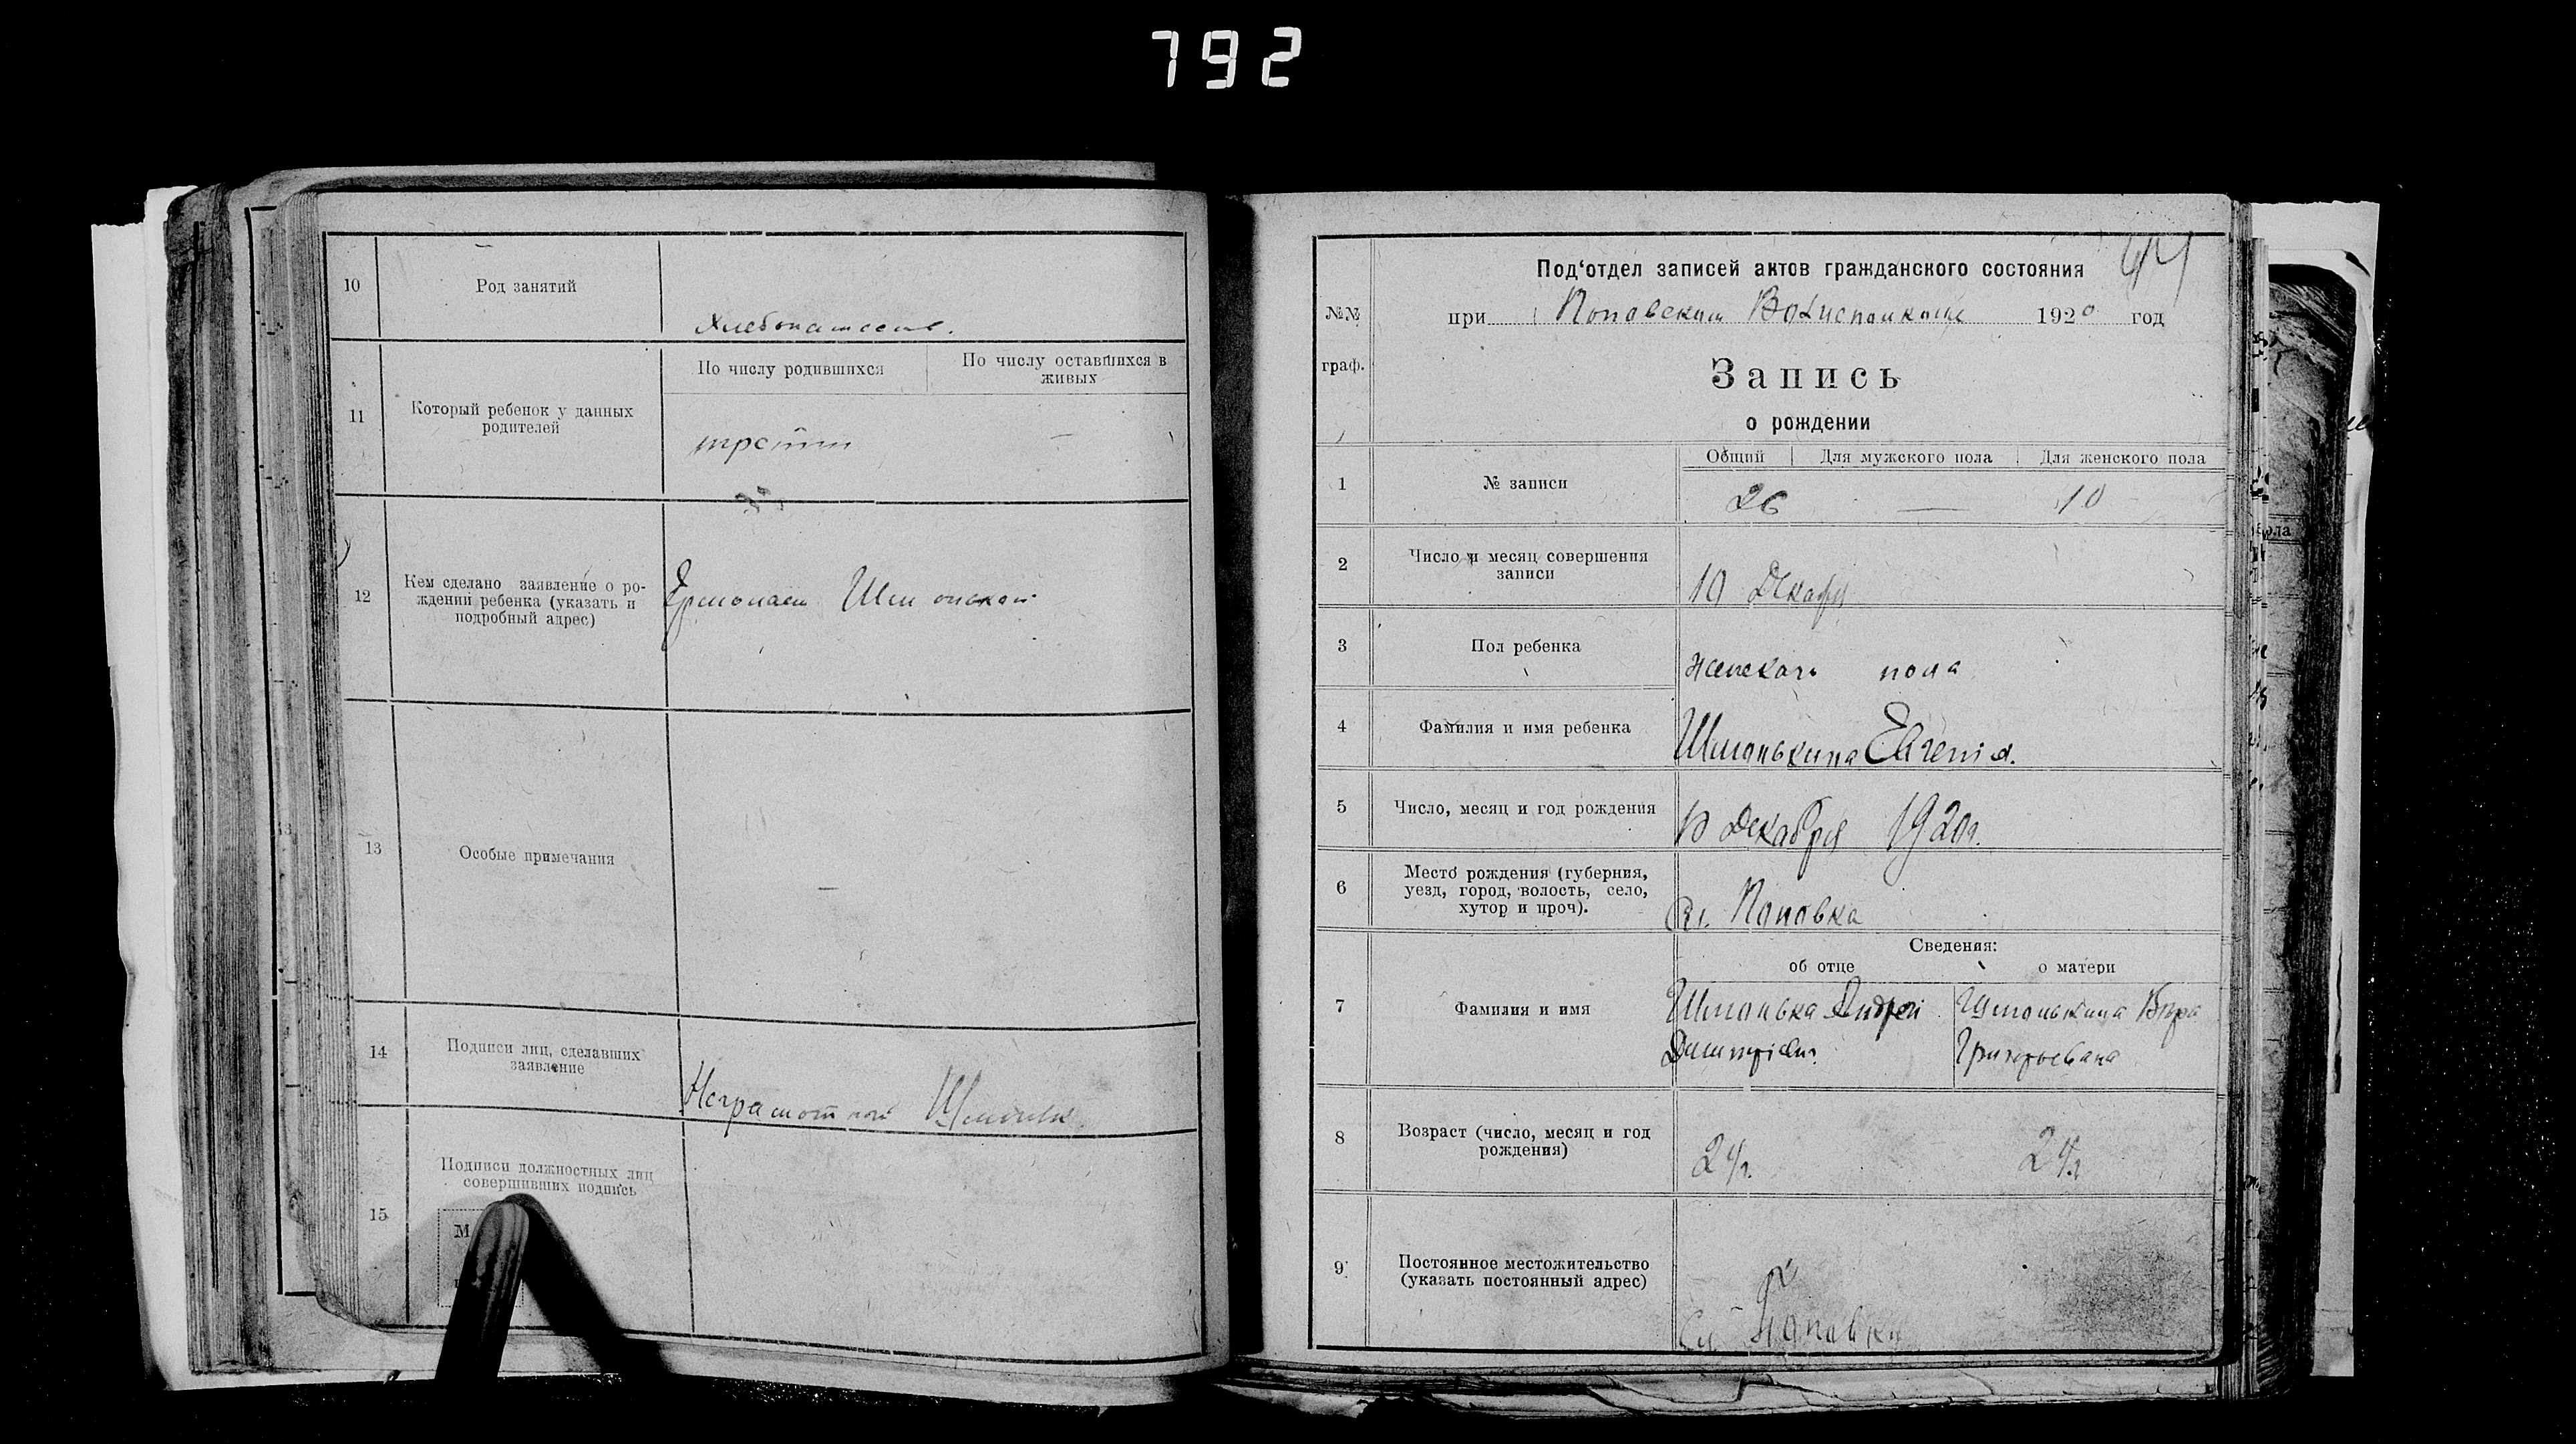 792
10
Род занятий
Хлебопашесте.
11
Который ребенок у данных
родителей
По числу родившихся
По числу оставшихся в
живых
третий
—
12
Кем сделано заявление о ро-
ждении ребенка (указать и
подробный адрес)
13
Особые примечания
—
14
Подписи лиц, сделавших
заявление
Неграмотной
15
Подписи должностных лиц
совершивших подпись
М
№№
граф.
Под‘отдел записей актов гражданского состояния
при Поповском Волисполкоме 1920 год
Запись
о рождении
1
№ записи
Общий
Для мужского пола
Для женского пола
26
—
10
2
Число и месяц совершения
записи
10 Декабр
3
Пол ребенка
женскаго пола
4
Фамилия и имя ребенка
Шмонькина Евгенія.
5
Число, месяц и год рождения
10 Декабря 1920г.
6
Место рождения (губерния,
уезд, город, волость, село,
хутор и проч).
Сл. Поповка
7
Фамилия и имя
Сведения:
об отце
о матери
Шмонька Андрей
Дмитріев.
Шмонькина Вѣра
Григорьевана
8
Возраст (число, месяц и год
рождения)
24г.
24г.
9
Постоянное местожительство
(указать постоянный адрес)
Сл. Поповки